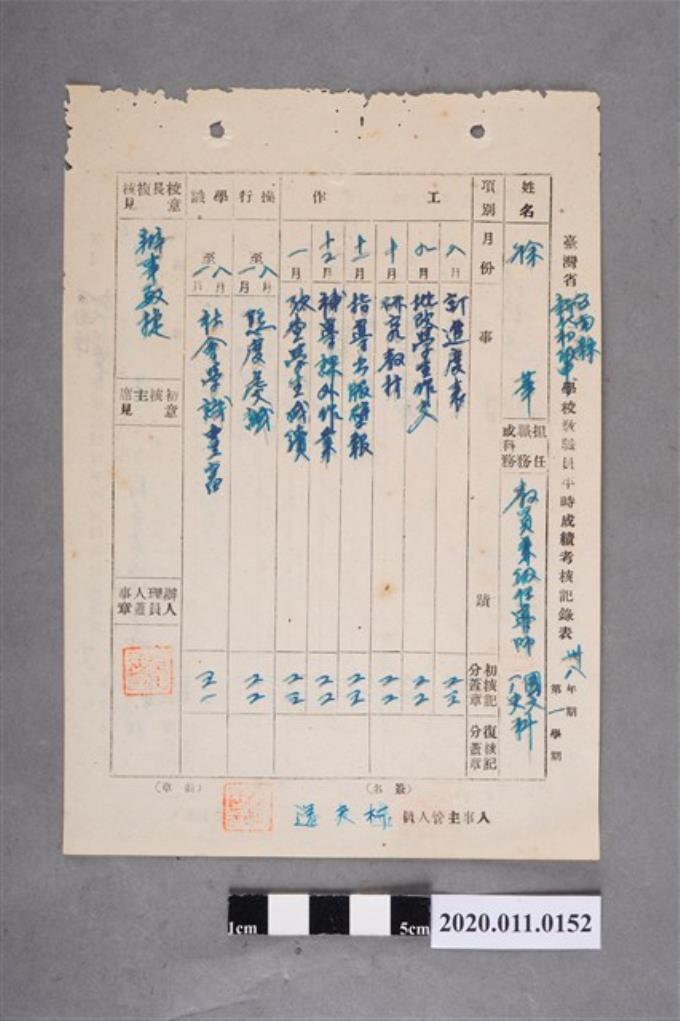 臺灣省台南縣新化初級中學校教職員平時成績考核記錄表
卅八年
第一學期
姓名
徐華
擔任職務或科務
教員兼級任導師
國文科
歷史科
項別
月份
事蹟
初核記分蓋章
復核記分蓋章
工作
八月
訂進度表
二三
九月
批改學生作文
二二
十月
研究教材
二二
十一月
指導出版壁報
二三
十二月
補導課外作業
二三
一月
考查學生成績
二三
操行
八月至一月
態度虔誠
二二
學識
八月至一月
社會學識豐富
三一
校長複核意見
辦事敏捷
初核主席意見
辦理人員人事蓋章
人事主管人員
(簽名)
(蓋章)
1cm
5cm
2020.011.0152